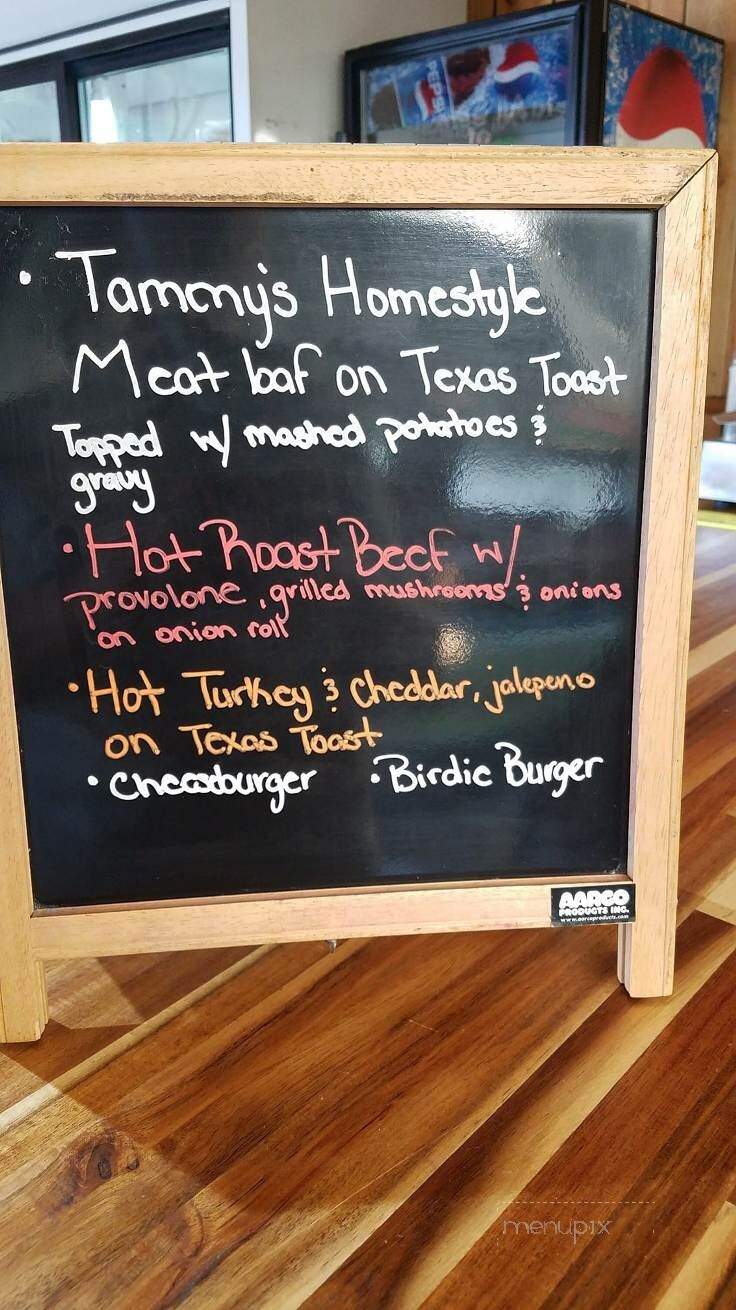 PEPSI
• Tammy's Homestyle
Meat loaf on Texas Toast
Topped w/ mashed potatoes &
gravy
• Hot Roast Beef w/
provolone, grilled mushrooms & onions
on onion roll
• Hot Turkey & cheddar, jalepeno
on Texas Toast
• cheeseburger • Birdie Burger
AARCO
PRODUCTS INC.
www.aarcoproducts.com
menupix